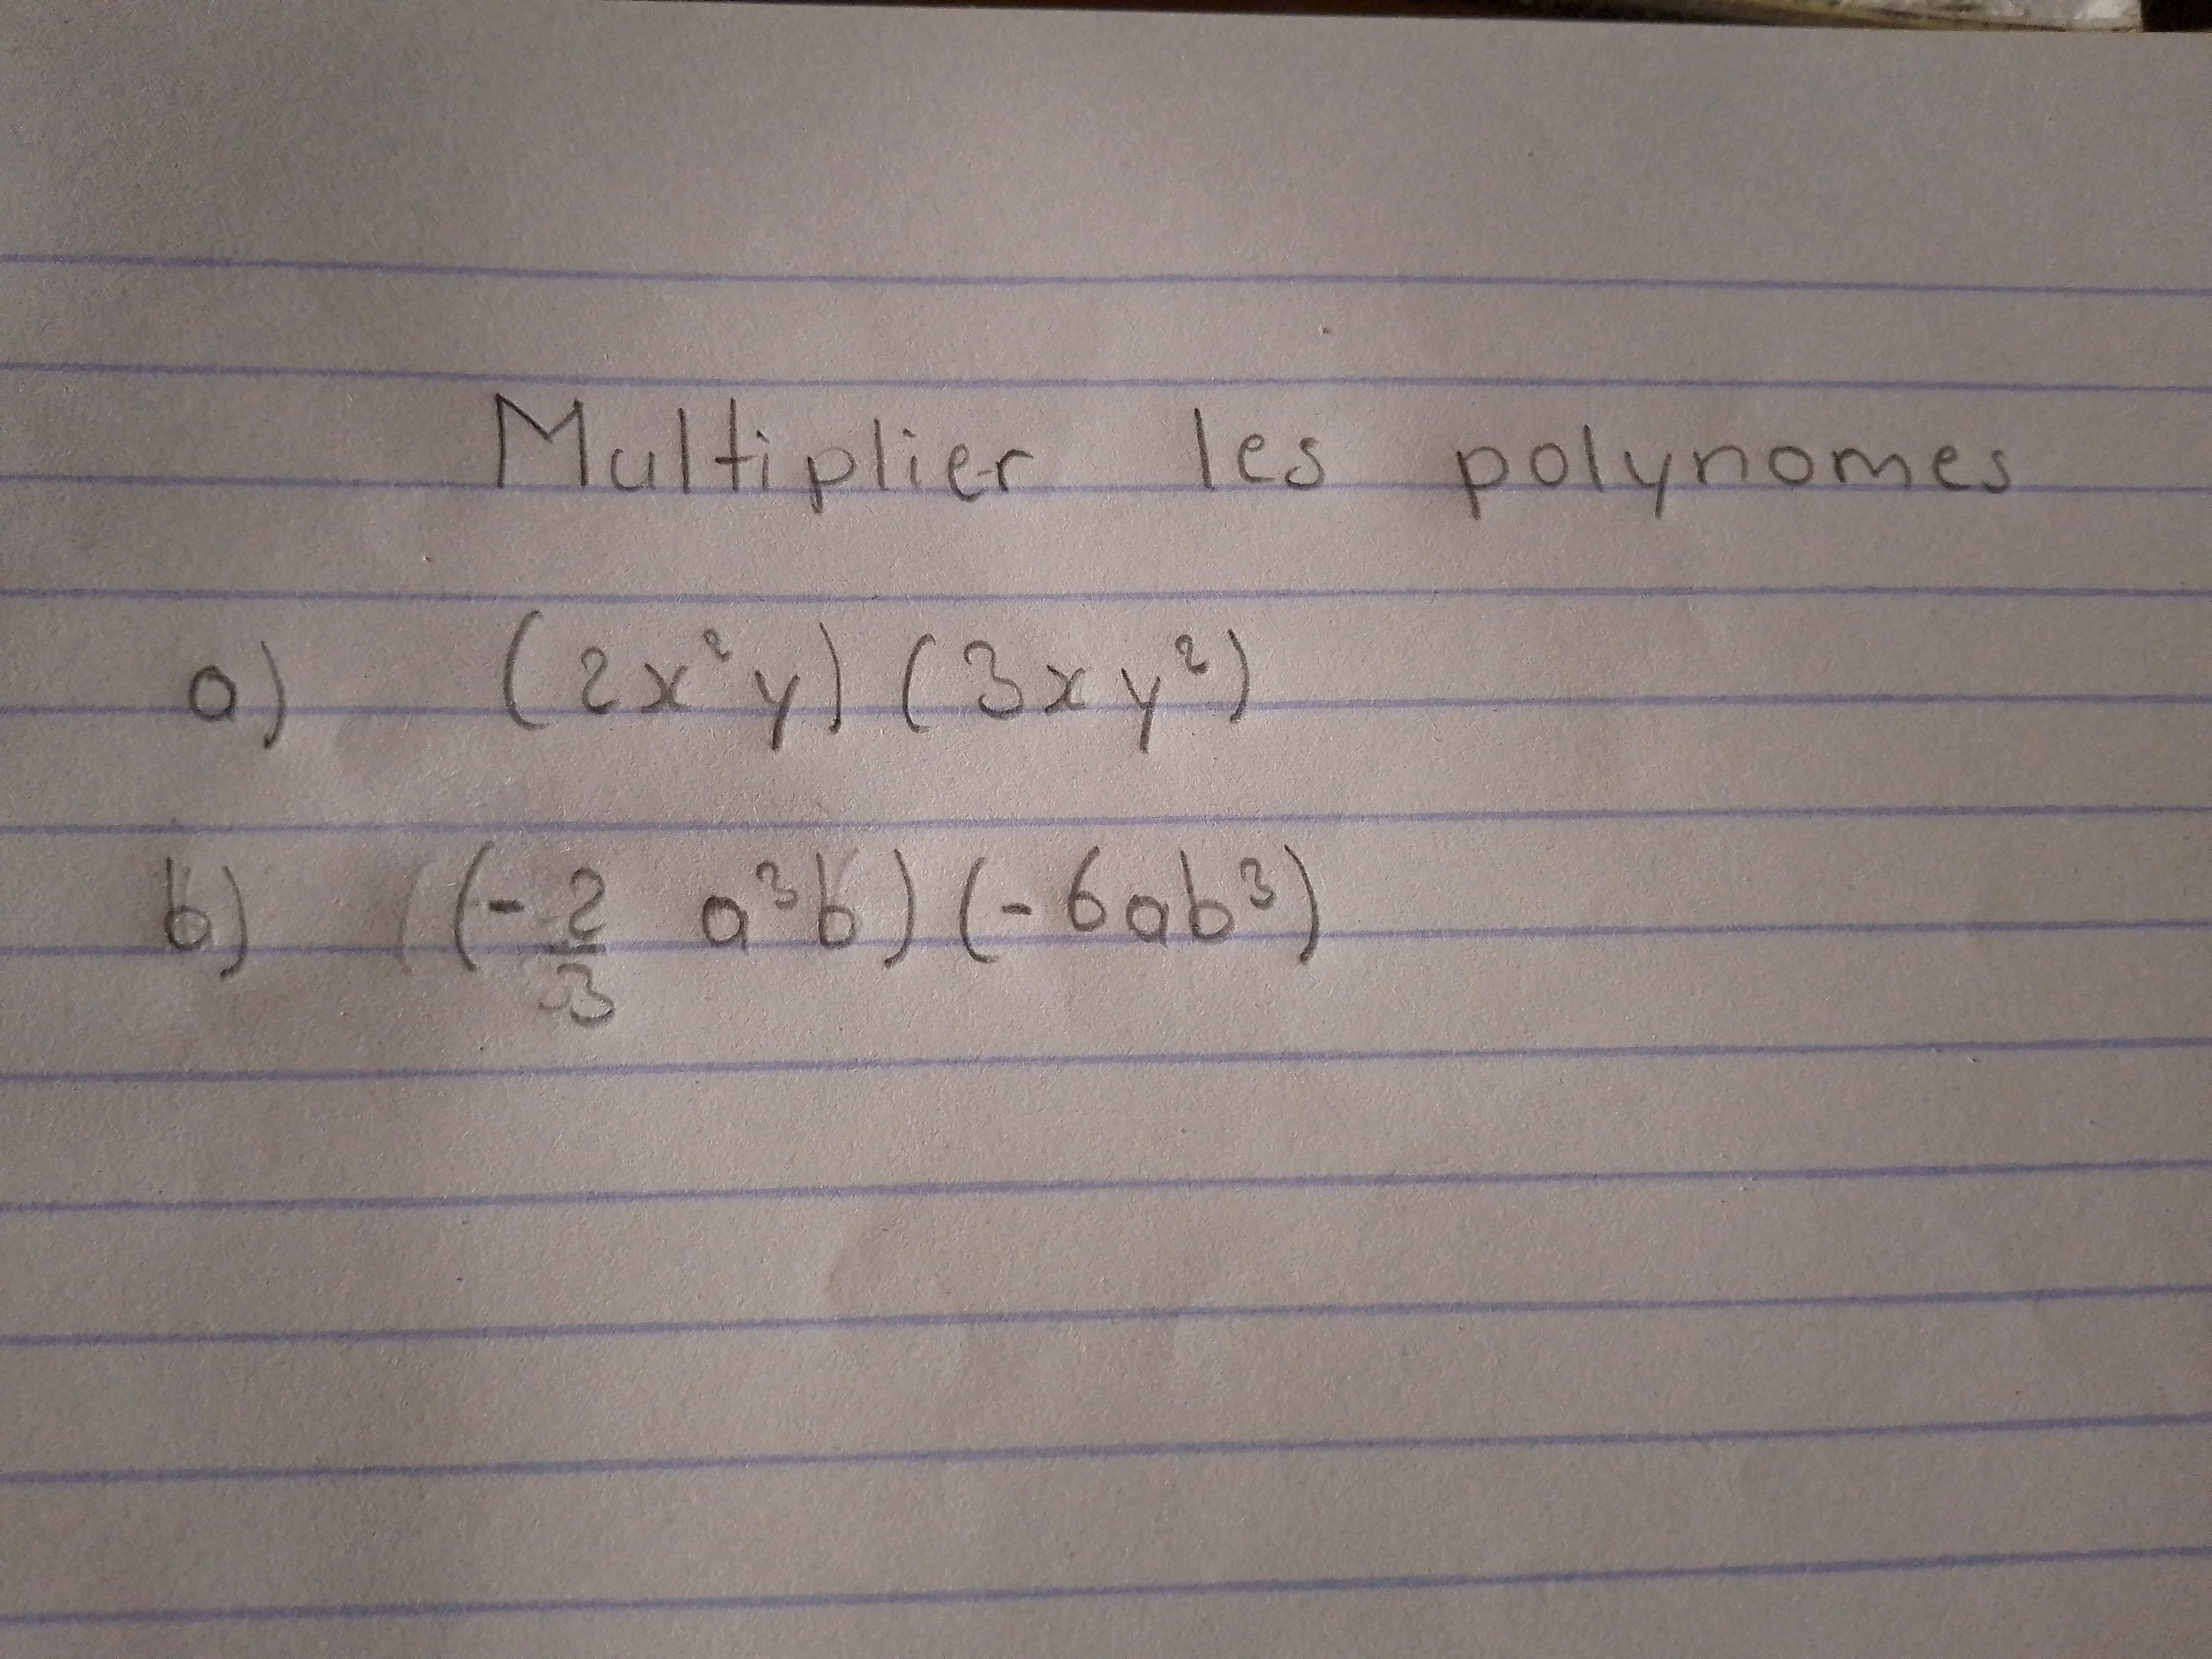 Multiplier les polynomes
a) (2x²y) (3xy²)
b) (-2/3 a³b) (-6ab³)